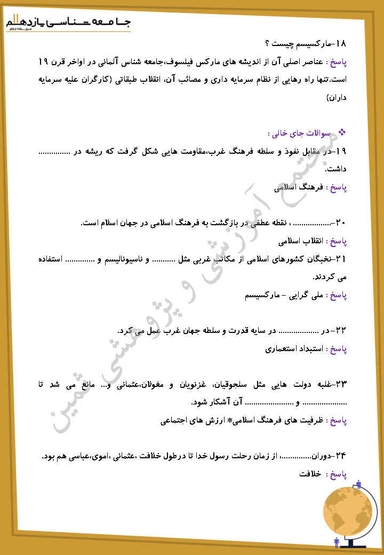 جامعه شناسی یازدهم
۱۸-مارکسیسم چیست ؟
پاسخ : عناصر اصلی آن از اندیشه های مارکس فیلسوف،جامعه شناس آلمانی در اواخر قرن ۱۹
است.تنها راه رهایی از نظام سرمایه داری و مصائب آن، انقلاب طبقاتی (کارگران علیه سرمایه
داران)
❖ سوالات جای خالی :
۱۹-در مقابل نفوذ و سلطه فرهنگ غرب،مقاومت هایی شکل گرفت که ریشه در ...............
داشت.
پاسخ : فرهنگ اسلامی
۲۰-.................. ، نقطه عطفی در بازگشت به فرهنگ اسلامی در جهان اسلام است.
پاسخ : انقلاب اسلامی
۲۱-نخبگان کشورهای اسلامی از مکاتب غربی مثل ........... و ناسیونالیسم و .............. استفاده
می کردند.
پاسخ : ملی گرایی – مارکسیسم
۲۲-در .................. در سایه قدرت و سلطه جهان غرب عمل می کرد.
پاسخ : استبداد استعماری
۲۳-غلبه دولت هایی مثل سلجوقیان، غزنویان و مغولان،عثمانی و... مانع می شد تا
..................... و ........................ آن آشکار شود.
پاسخ : ظرفیت های فرهنگ اسلامی* ارزش های اجتماعی
۲۴-دوران...............؛ از زمان رحلت رسول خدا تا درطول خلافت ،عثمانی ،اموی،عباسی هم بود.
پاسخ : خلافت
مجتمع آموزشی و پژوهشی ثمین